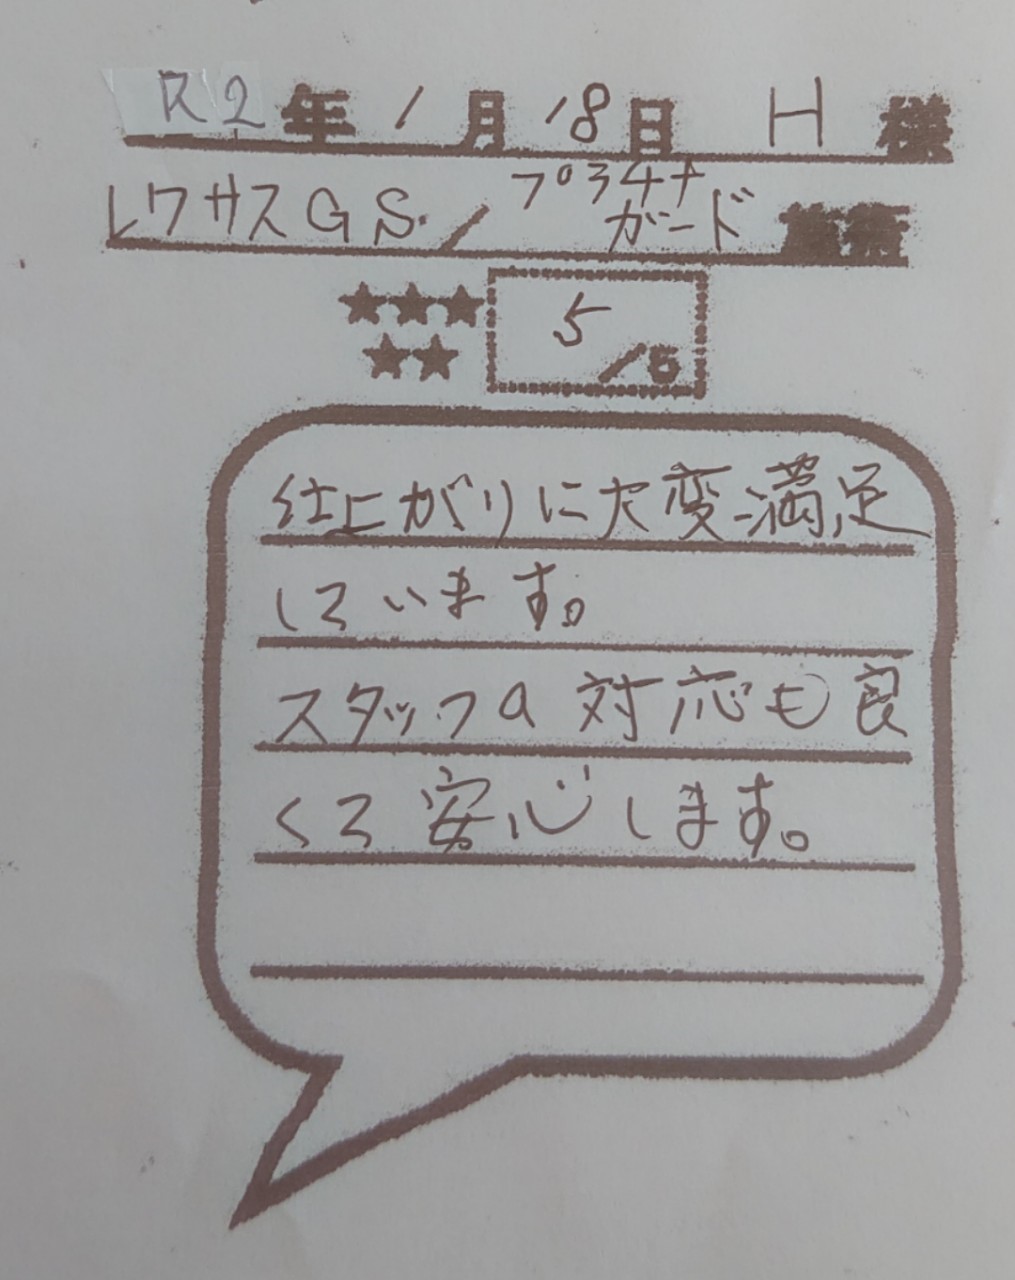 R2年1月18日 H 様
レクサスGS／プラチナガード 施術
★★★★★ 5/5
仕上がりに大変満足
しています。
スタッフの対応も良
くて安心します。